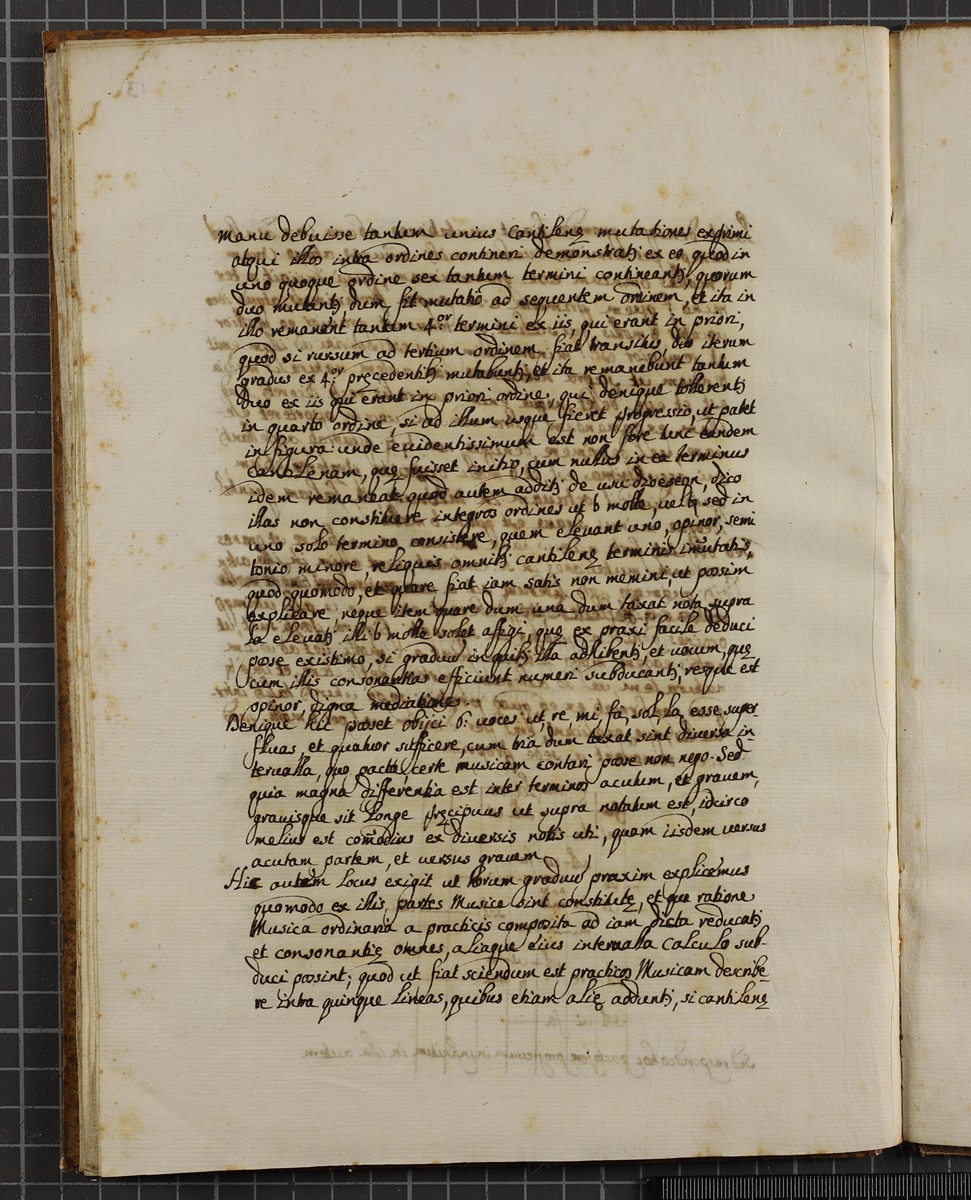 manu debuisse tantum unius Cantilenę mutationes exprimi
atqui illas intra ordines contineri demonstratꝫ ex eo quod in
uno quoque ordine sex tantum termini contineantꝫ, quorum
duo mutantꝫ, dum fit mutatio ad sequentem ordinem, et ita in
illo remanent tantum 4.or termini ex iis, qui erant in priori,
quod si rursum ad tertium ordinem fiat transitus, duo iterum
gradus ex 4.or pręcedentibꝫ mutabuntꝫ, et ita remanebunt tantum
duo ex iis qui erant in priori ordine, qui denique tollerentꝫ
in quarto ordine, si ad illum usque fieret progressio, ut patet
in figura: unde euidentissimum est non fore tunc eandem
Cantilenam, quę fuisset initio, cum nullus in ea terminus
idem remaneat. quod autem additꝫ de usu dioeseon, dico
illas non constituere integros ordines ut b molle, vel ♮, sed in
uno solo termino consistere, quem elevant uno, opinor, semi
tonio minore, reliquis omnibꝫ cantilenę terminis imutatis,
quod quomodo, et quare fiat iam satis non memini, ut possim
explicare, neque item quare dum una dum taxat nota supra
la elevatꝫ illi b molle solet affigi, quę ex praxi facile deduci
posse existimo, si graduu in quibꝫ illa adhibentꝫ, et uocum, quę
cum illis consonantias efficiunt numeri subducantꝫ, resque est
opinor, digna meditatione.
Denique hic posset obijci 6: uoces ut, re, mi, fa, sol, la esse super-
fluas, et quatuor sufficere, cum tria dum taxat sint diuersa in
terualla, quo pacto, certe musicam contari posse non nego. Sed
quia magna differentia est inter terminos acutum, et grauem,
grauisque sit longe pręcipuus ut supra notatum est, idcirco
melius est comodius ex diuersis notis uti, quam iisdem uersus
acutam partem, et uersus grauem
Hic autem locus exigit ut horum graduu praxim explicemus
quomodo ex illis, partes Musice sint constitutę, et que ratione
Musica ordinaria a practicis composita ad iam dicta reducatꝫ
et consonantię omnes, aliaque eius interualla Calculo sub-
duci possint; quod ut fiat sciendum est practicos Musicam describe-
re intra quinque lineas, quibus etiam alię adduntꝫ, si cantilenę